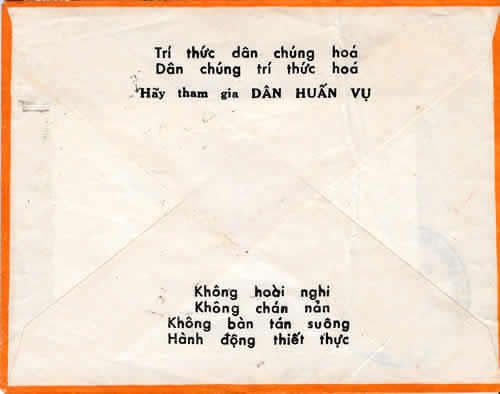 Trí thức dân chúng hoá
Dân chúng trí thức hoá
Hãy tham gia DÂN HUẤN VỤ
Không hoài nghi
Không chán nản
Không bàn tán suông
Hành động thiết thực